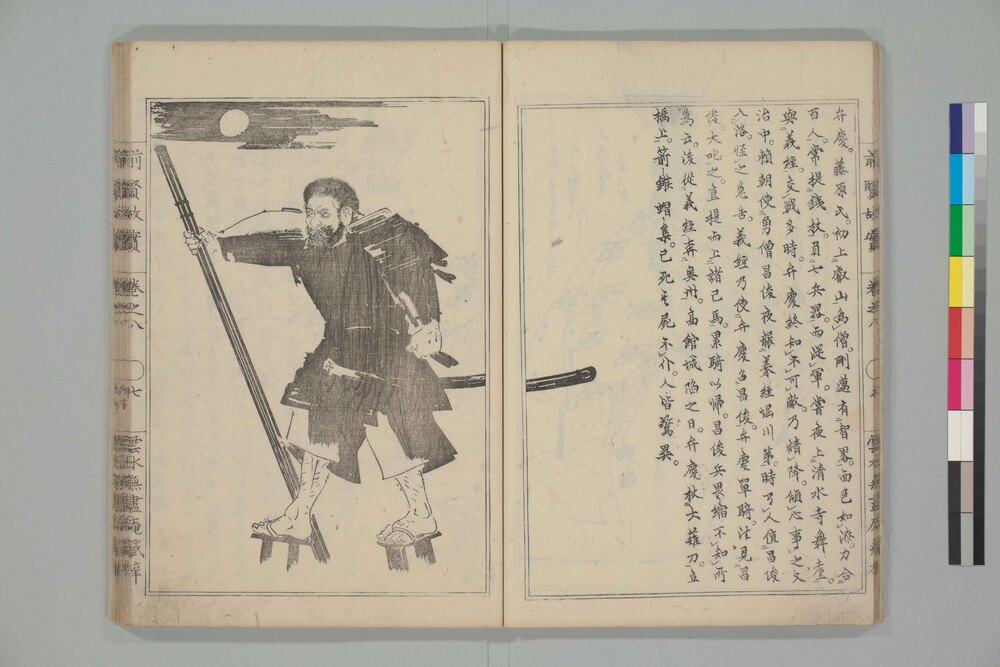 弁慶。藤原氏。初上叡山為僧。剛邁有智畧。面色如漆。力合
百人。常提鉄杖。員七兵器。而從軍。嘗夜上清水寺舞臺。
與義經。交戰多時。弁慶終知不可敵。乃請降。傾心事之。文
治中。賴朝使勇僧昌俊夜襲義經堀川第。時有人值昌俊
入洛。怪之急告。義經乃使弁慶召昌俊。弁慶單騎。往見昌
俊。大叱之。直提而上諸己馬。累騎以歸。昌俊兵畏縮不知所
為云。後從義經奔奥州。高館城陷之日。弁慶杖大薙刀立
橋上。箭鏃蝟集。已死其屍不仆。人皆驚異。
前賢故實
卷之八
七
雲水無盡庵藏梓
前賢故實
卷之八